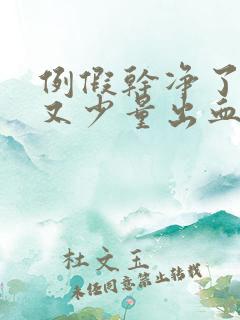 例假幹净了
又少量出血
杜文玉
未经同意禁止转载